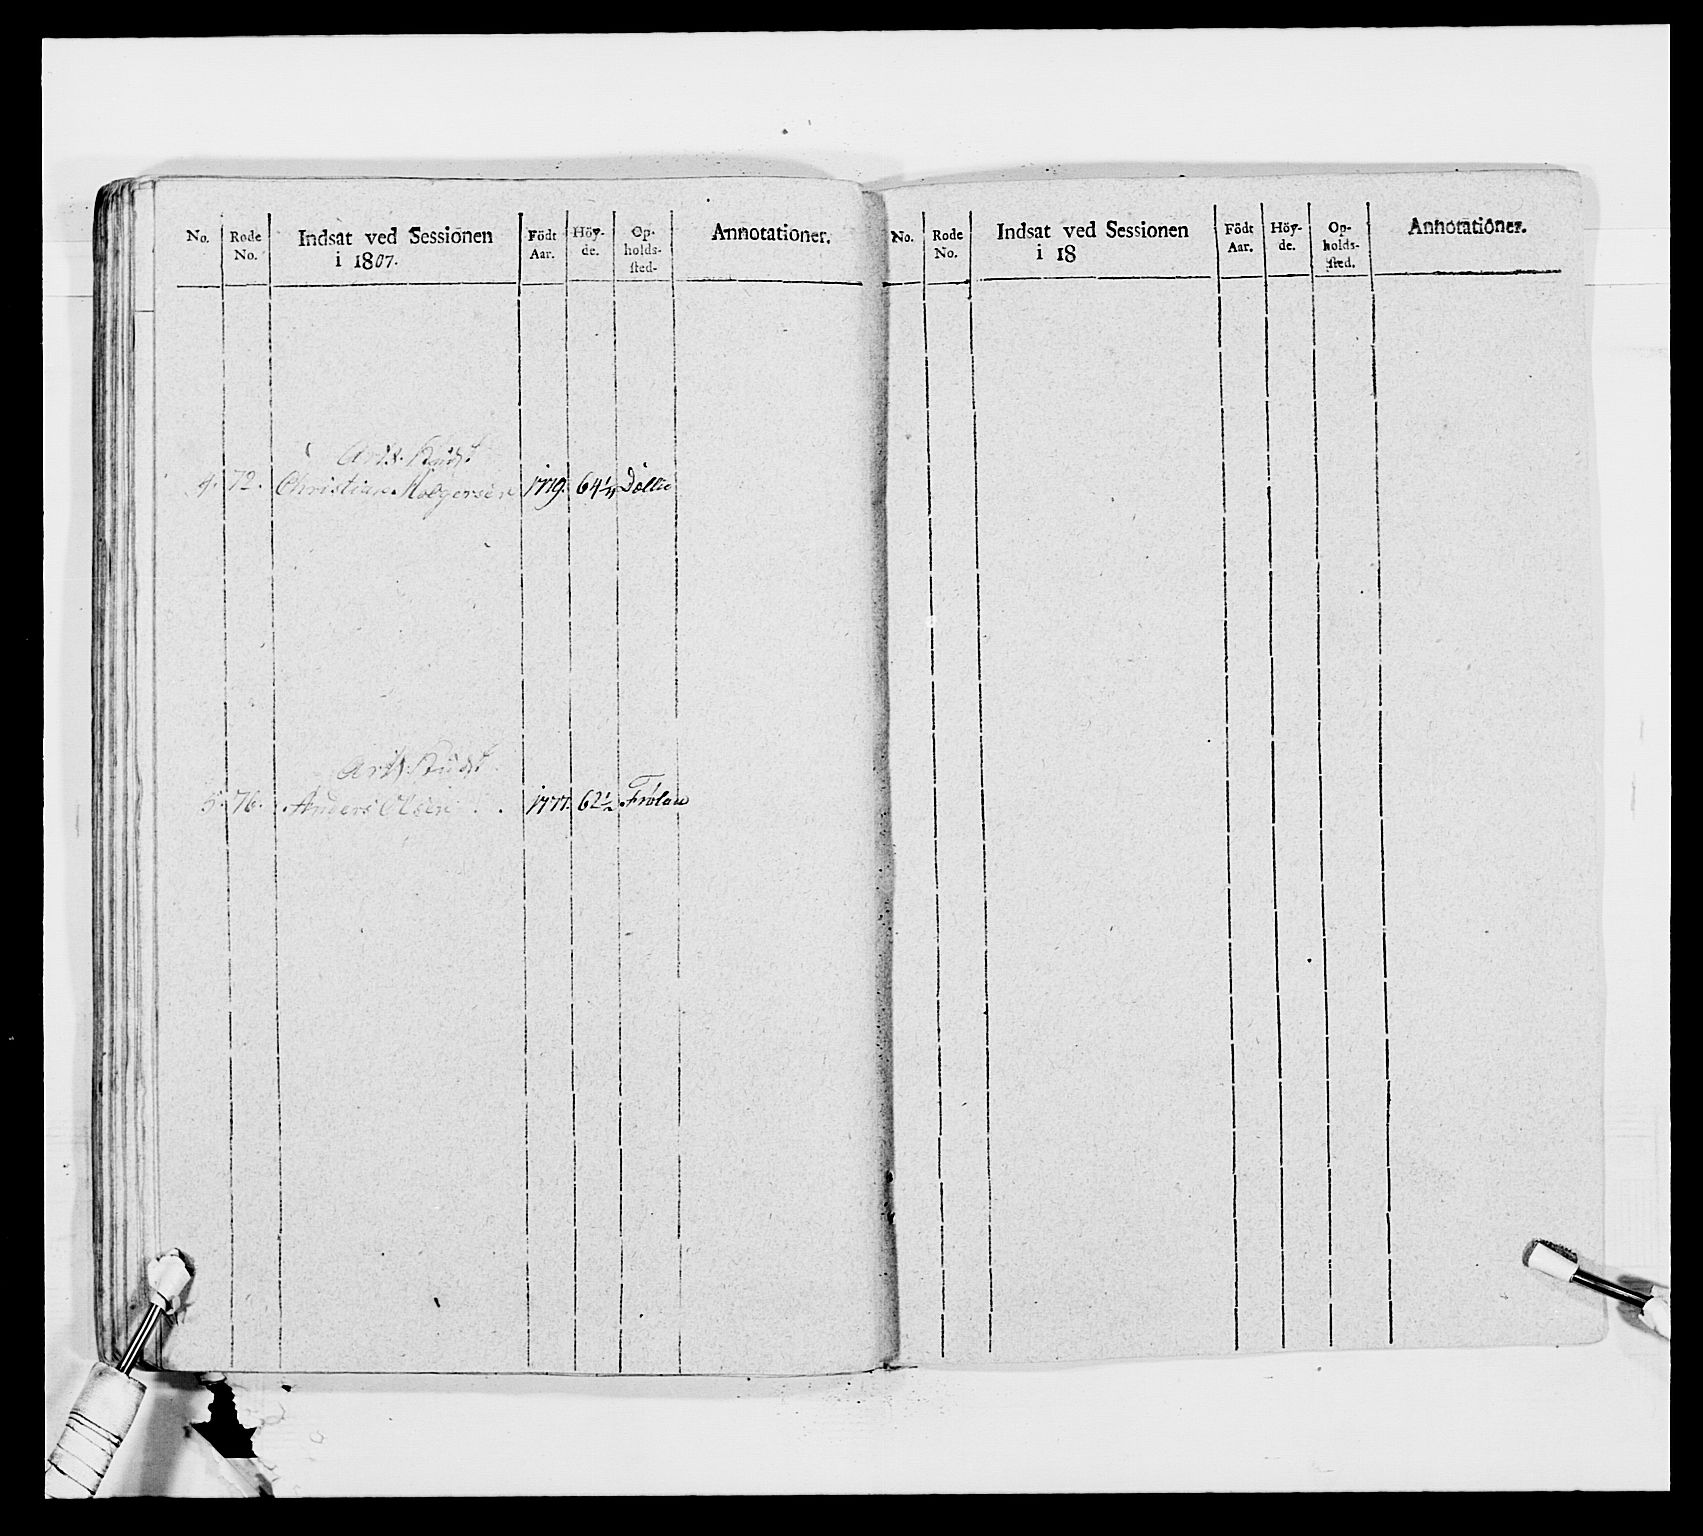 No. Rode No. Indsat ved Sessionen i 1807. Födt Aar. Höy-de. Op-holds-sted. Annotationer.
4. 72. Christian Holgersen 1779. 64 1/4
5. 76. Anders Olsen 1777. 62 1/2 Frölan
No. Rode No. Indsat ved Sessionen i 18 Födt Aar. Höy-de. Op-holds-sted. Annotationer.